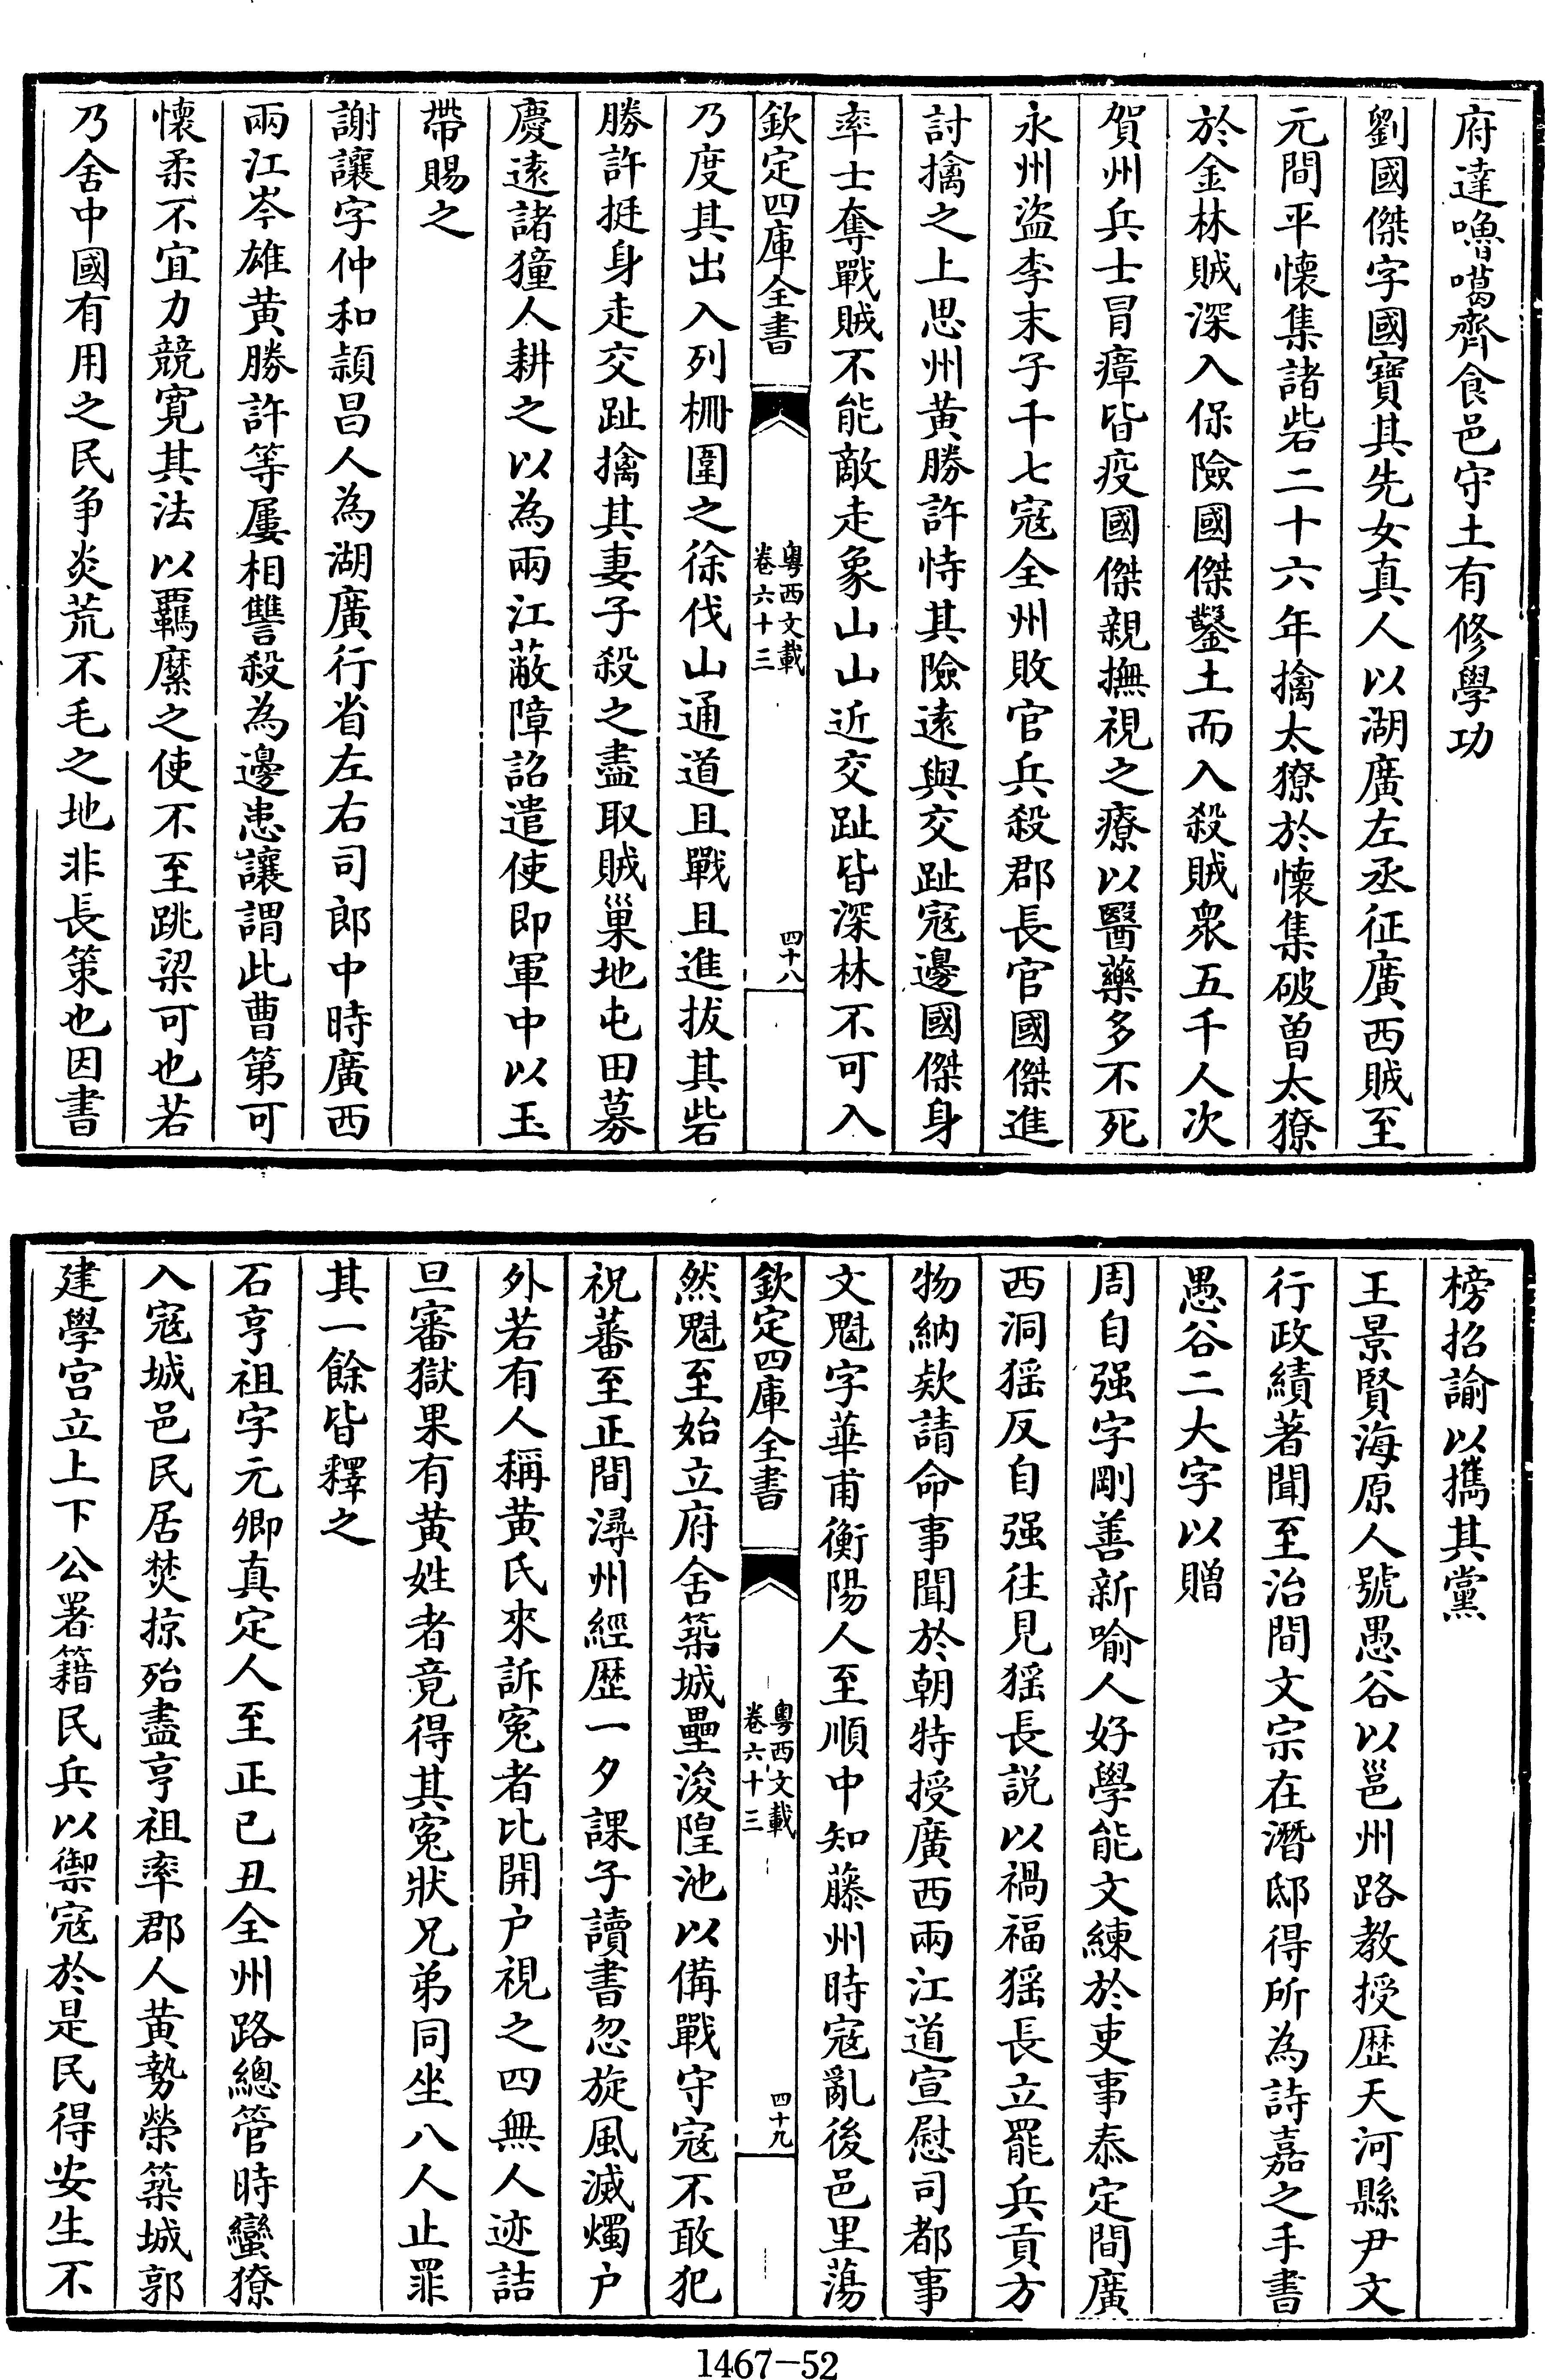 府達嚕噶齊食邑守土有修學功
劉國傑字國寶其先女真人以湖廣左丞征廣西賊至
元間平懷集諸砦二十六年擒太獠於懷集破曾太獠
於金林賊深入保險國傑鑿土而入殺賊衆五千人次
賀州兵士冒瘴皆疫國傑親撫視之療以醫藥多不死
永州盜李末子千七寇全州敗官兵殺郡長官國傑進
討擒之上思州黃勝許恃其險遠與交趾寇邊國傑身
率士奪戰賊不能敵走象山山近交趾皆深林不可入
欽定四庫全書
粵西文載
卷六十三
四十八
乃度其出入列柵圍之徐伐山通道且戰且進拔其砦
勝許挺身走交趾擒其妻子殺之盡取賊巢地屯田募
慶遠諸獞人耕之以為兩江蔽障詔遣使即軍中以玉
帶賜之
謝讓字仲和潁昌人為湖廣行省左右司郎中時廣西
兩江岑雄黃勝許等屢相讐殺為邊患讓謂此曹第可
懷柔不宜力競寛其法以羈縻之使不至跳梁可也若
乃舍中國有用之民争炎荒不毛之地非長策也因書
榜招諭以攜其黨
王景賢海原人號愚谷以邕州路教授歴天河縣尹文
行政績著聞至治間文宗在潛邸得所為詩嘉之手書
愚谷二大字以贈
周自强字剛善新喻人好學能文練於吏事泰定間廣
西洞猺反自强往見猺長説以禍福猺長立罷兵貢方
物納欵請命事聞於朝特授廣西兩江道宣慰司都事
文魁字華甫衡陽人至順中知藤州時寇亂後邑里蕩
欽定四庫全書
粵西文載
卷六十三
四十九
然魁至始立府舍築城壘浚隍池以備戰守寇不敢犯
祝蕃至正間潯州經歴一夕課子讀書忽旋風滅燭户
外若有人稱黄氏來訴寃者比開户視之四無人迹詰
旦審獄果有黄姓者竟得其寃狀兄弟同坐八人止罪
其一餘皆釋之
石亨祖字元卿真定人至正已丑全州路總管時蠻獠
入寇城邑民居焚掠殆盡亨祖率郡人黄勢榮築城郭
建學宫立上下公署籍民兵以禦寇於是民得安生不
1467-52